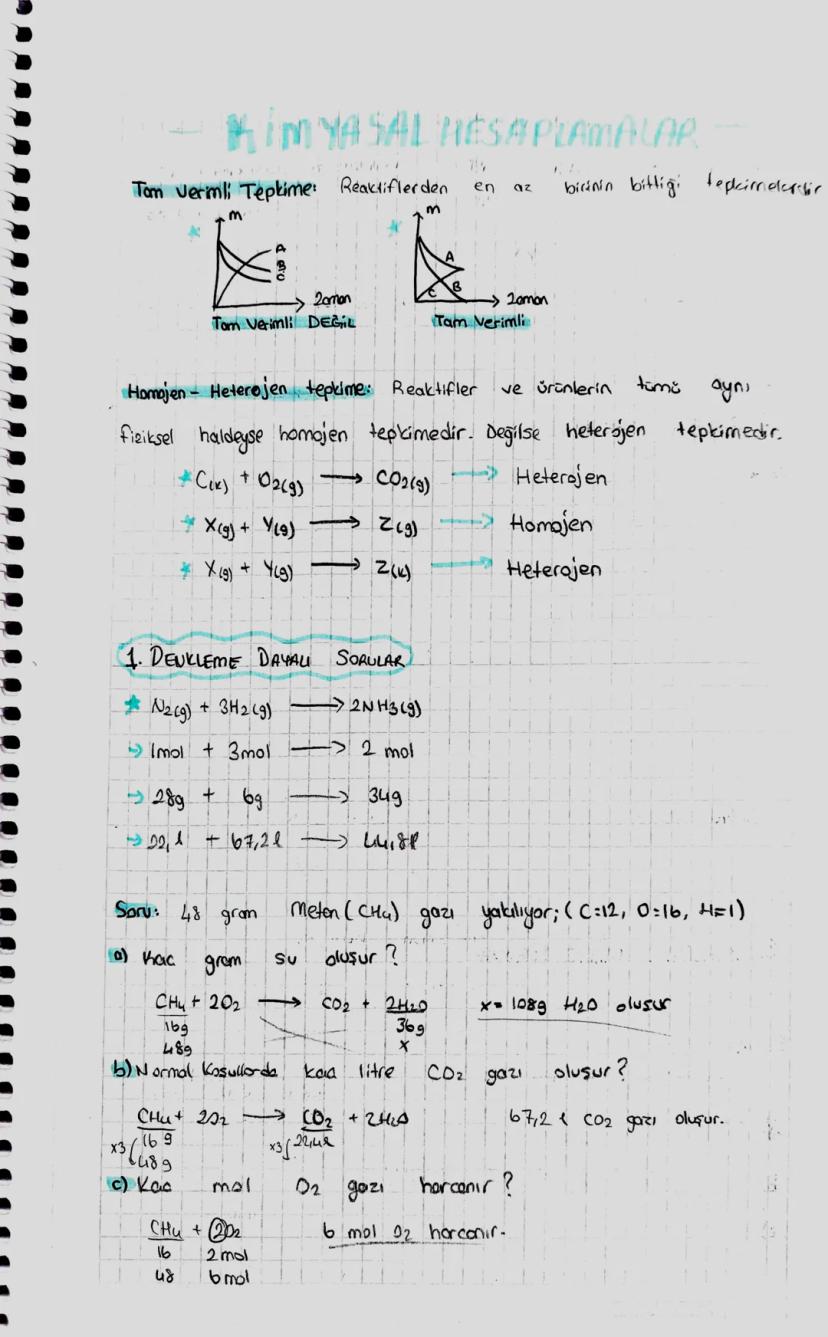 - KİMYASAL HESAPLAMALAR -
Tam Verimli Tepkime: Reaktiflerden en az birinin bittiği tepkimelerdir
m m
A
B
C
A
B
C
zaman zaman
Tam Verimli DEĞİL Tam Verimli
Homojen - Heterojen tepkime: Reaktifler ve ürünlerin tümü aynı
fiziksel haldeyse homojen tepkimedir. Değilse heterojen tepkimedir.
* C(k) + O2(g) → CO2(g) → Heterojen
* X(g) + Y(g) → Z(g) → Homojen
* X(g) + Y(g) → Z(k) → Heterojen
1. DENKLEME DAYALI SORULAR
* N2(g) + 3H2(g) → 2NH3(g)
→ 1mol + 3mol → 2 mol
→ 28g + 6g → 34g
→ 22,l + 67,2l → 44,8l
Soru: 48 gram Metan (CH4) gazı yakılıyor; (C:12, O:16, H=1)
a) Kac gram su oluşur?
CH4 + 2O2 → CO2 + 2H2O x = 108g H2O olusur
16g 36g
48g x
b) Normal Koşullarda kaç litre CO2 gazı oluşur?
CH4 + 2O2 → CO2 + 2H2O 67,2 l CO2 gazı oluşur.
x3 16 g x3 22,4l
48g
c) Kac mol O2 gazı harcanır?
CH4 + 2O2 6 mol O2 harcanır.
16 2mol
48 6mol